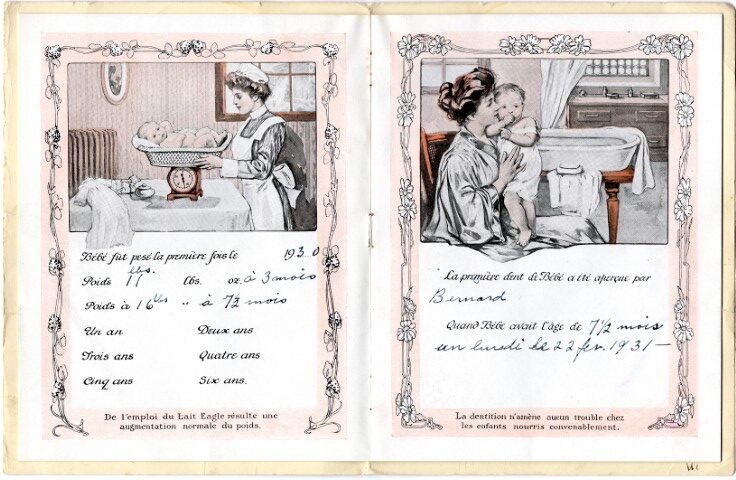 Bébé fut pesé la première fois le 1930
Poids 11 lbs. lbs. oz. à 3 mois
Poids à 16 lbs " à 7½ mois
Un an Deux ans
Trois ans Quatre ans
Cinq ans Six ans.
De l'emploi du Lait Eagle résulte une
augmentation normale du poids.
La première dent de Bébé a été aperçue par
Bernard
Quand Bébé avait l'âge de 7½ mois
un lundi le 22 fev. 1931 —
La dentition n'amène aucun trouble chez
les enfants nourris convenablement.